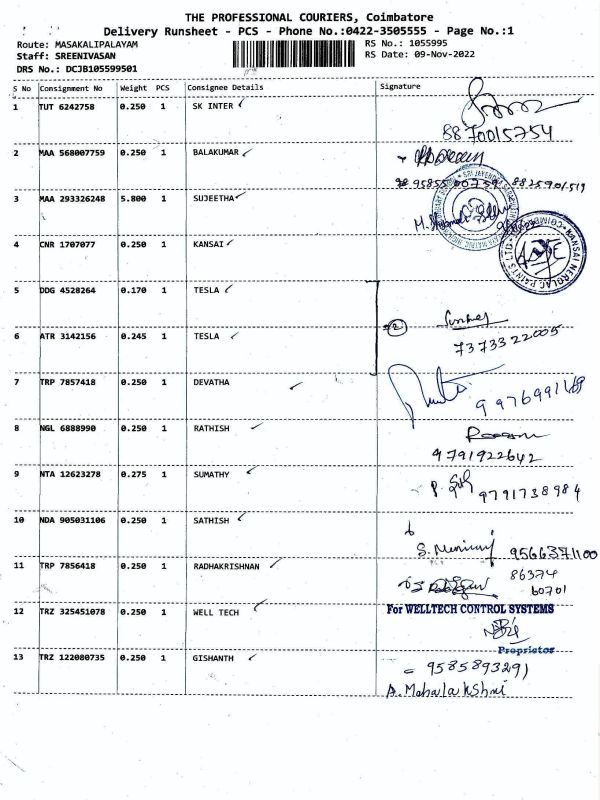 THE PROFESSIONAL COURIERS, Coimbatore
Delivery Runsheet - PCS - Phone No.:0422-3505555 - Page No.:1
Route: MASAKALIPALAYAM
RS No.: 1055995
Staff: SREENIVASAN
RS Date: 09-Nov-2022
DRS No.: DCJB105599501
S No Consignment No Weight PCS Consignee Details Signature
1 TUT 6242758 0.250 1 SK INTER
8870015754
2 MAA 568007759 0.250 1 BALAKUMAR
8825901519
3 MAA 293326248 5.800 1 SUJEETHA
4 CNR 1707077 0.250 1 KANSAI
KANSAI NEROLAC PAINTS LTD
5 DDG 4528264 0.170 1 TESLA
6 ATR 3142156 0.245 1 TESLA
2
7373322005
7 TRP 7857418 0.250 1 DEVATHA
9976991169
8 NGL 6888990 0.250 1 RATHISH
9791922642
9 NTA 12623278 0.275 1 SUMATHY
9791738984
10 NDA 905031106 0.250 1 SATHISH
9566371100
11 TRP 7856418 0.250 1 RADHAKRISHNAN
86374
60701
12 TRZ 325451078 0.250 1 WELL TECH
For WELLTECH CONTROL SYSTEMS
Proprietor
13 TRZ 122080735 0.250 1 GISHANTH
9585893291
A. Mahalakshmi